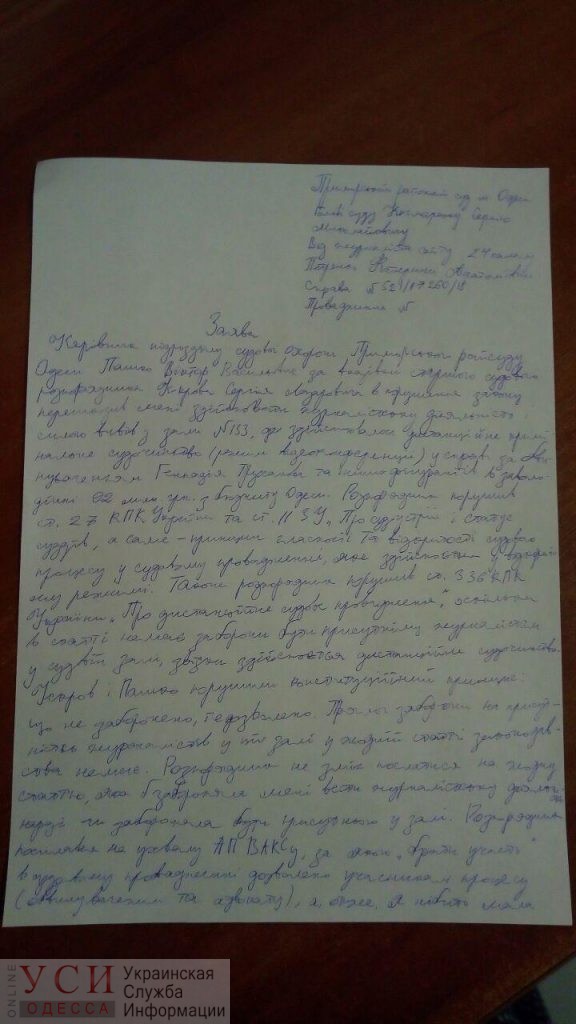 Приморський районний суд м. Одеси
Голові суду Кічмаренку Сергію
Михайловичу
Від журналіста сайту
Справа №
Провадження №
Заява
Керівник підрозділу судової охорони Приморського райсуду
Одеси Пашко Віктор Васильович за вказівкою старшого судового
розпорядника Сергія Назаровича в порушення закону
мені здійснювати журналістську діяльність,
силою вивів з зали №153, де здійснювалося дистанційне кримі-
нальне судочинство (режим відеоконференції) у справі за обви-
нуваченням Геннадія Труханова та інших фігурантів в заволо-
дінні 92 млн грн. з бюджету Одеси. Розпорядник порушив
ст. 27 КПК України та ст. 11 ЗУ „Про судоустрій і статус
суддів, а саме - принцип гласності та відкритості судового
процесу у судовому провадженні, яке здійснюється у
режимі. Також розпорядник порушив ст. 336 КПК
України „Про дистанційне судове провадження", оскільки
в статті немає заборони бути присутніми журналістам
у судовій залі, звідки здійснюється дистанційне судочинство.
і Пашко порушили конституційний принцип:
що не заборонено, те дозволено. Прямої заборони на присут-
ність журналістів у залі у жодній статті законодав-
ства немає. Розпорядник не зміг послатися на жодну
статтю, яка б забороняла мені вести журналістську діяль-
ність чи забороняла бути присутньою у залі. Розпорядник
посилався на ухвалу АП ВАКСу, за якою „брати участь"
в судовому провадженні дозволено учасникам процесу
(обвинуваченим та адвокату), а, отже, я нібито мала
ONLINE
УСИ
ОДЕССА
Украинская
Служба
Информации